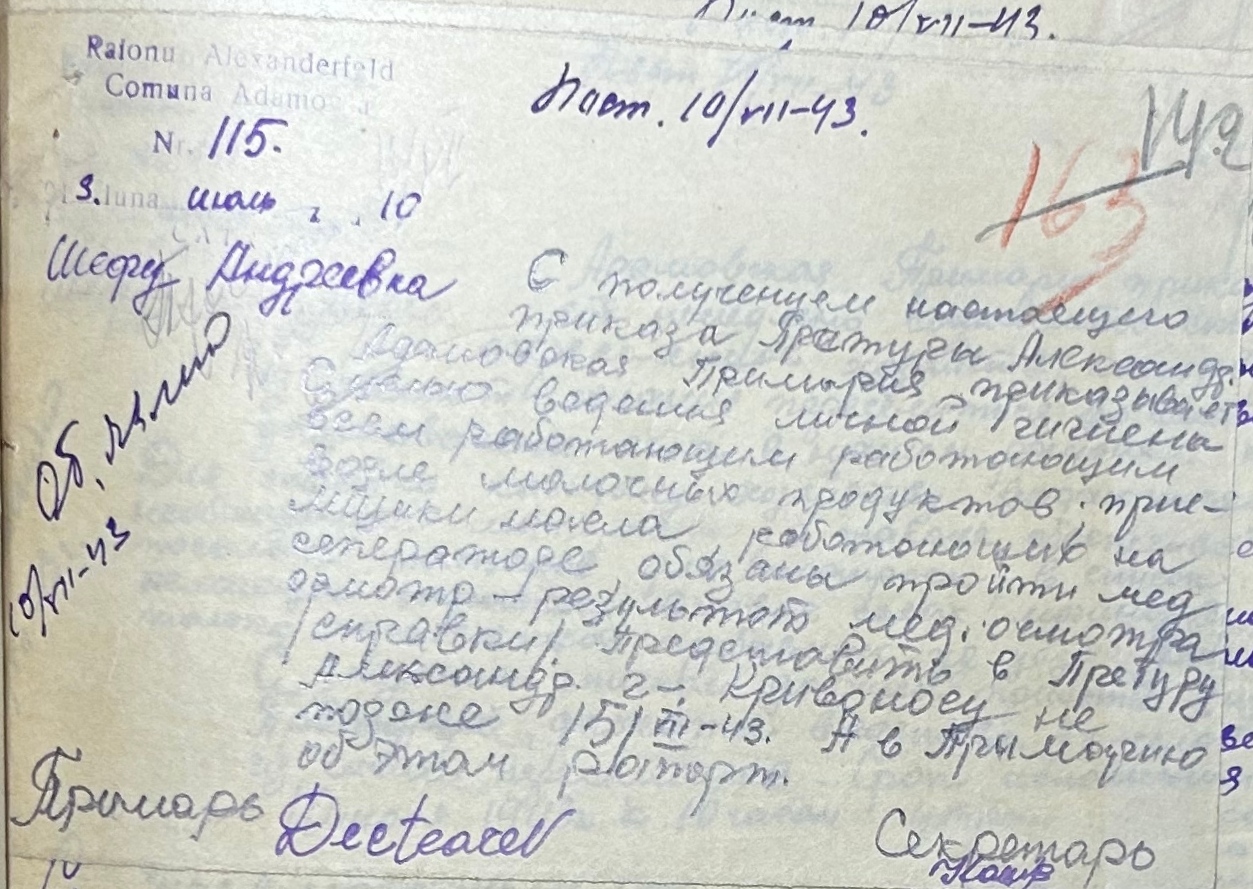 10/VII-43.
Raionu Alexanderfeld
Comuna Adamo
Паст. 10/VII-43.
Nr. 115.
142
163
3. luna июль 10
Шефу Андреевка
С получением настоящего
приказа Претуры Александр.
Адамовская Примария приказывает
С целью ведения личной гигиены
всем работающим работающим
возле молочных продуктов. прие-
мщики масла работающих на
сепараторе, обязаны пройти мед
осмотр – результат мед. осмотра
/справки/ Представить в Претуру
Александр. г-. Кривоносу не
позже 15/VII-43. А в Прымарию
об этом рапорт.
10/VII-43
Примарь
Секретарь